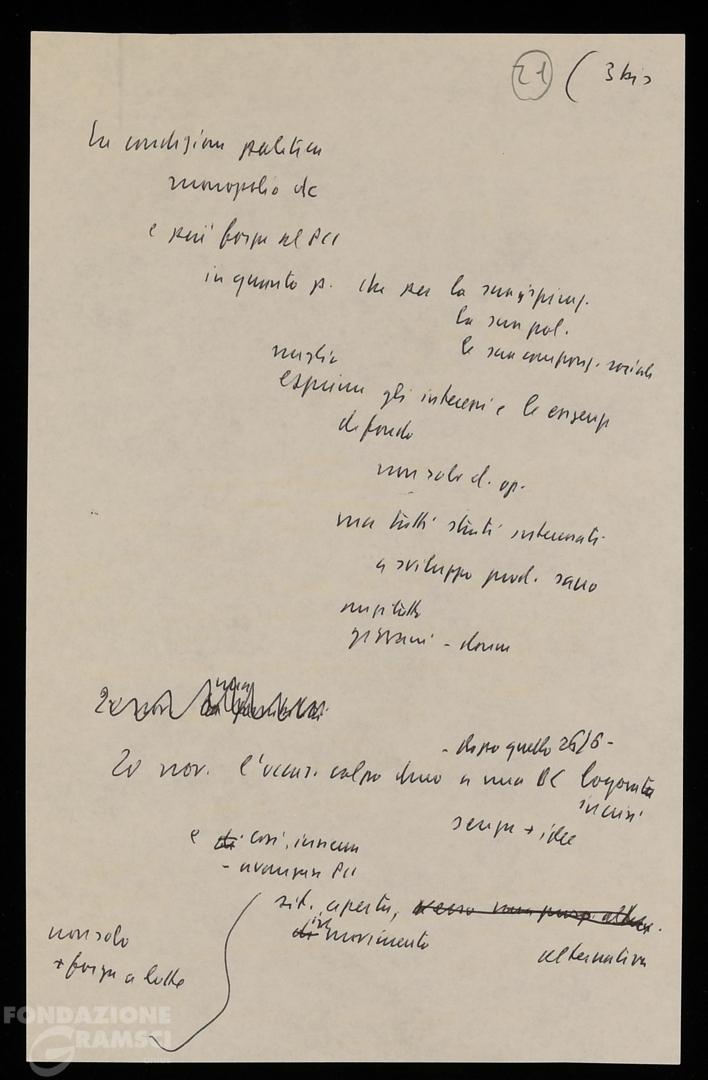 21 ( 3 bis
condizioni politica
monopolio dc
e più forza al PCI
in quanto p. che per la sua ispiraz.
la sua pol.
la sua compos. sociale
meglio
esprime gli interessi e le esigenze
di fondo
non solo d. op.
ma tutti strati interessati
a sviluppo prod. sano
giovani - donne
20 nov.
- dopo quello 26/6 -
20 nov. l'occas. colpo duro a una DC logorata
in crisi
senza + idee
e così, insieme
- avanzare PCI
sit. aperta,
in movimento
alternativa
non solo
+ forza a lotte
FONDAZIONE
GRAMSCI